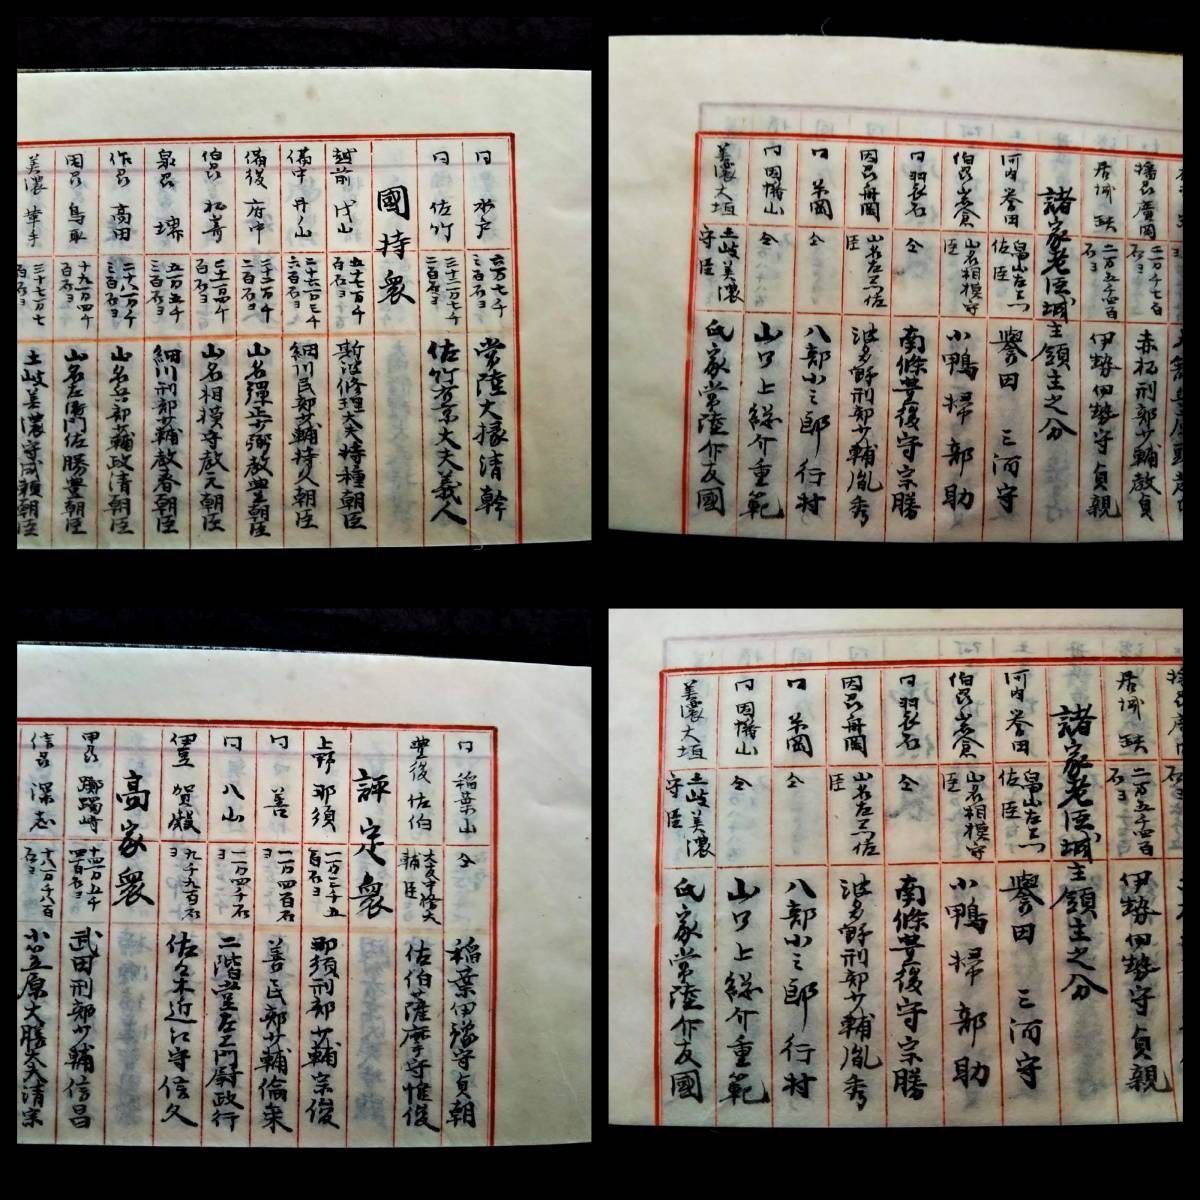 仝 水戸 六万七千三百石ヨ 常陸大掾清幹
仝 佐竹 三十二万七千二百石ヨ 佐竹右京大夫義人
國持衆
越前 戌山 五万七百石ヨ 斯波修理大夫持種朝臣
備中 井山 二十六万七千六百石ヨ 細川民部少輔持久朝臣
備後 府中 山名彈正少弼教豊朝臣
伯㠯 山名相模守教元朝臣
泉㠯 堺 五万五千三百石ヨ 細川刑部少輔教春朝臣
作㠯 高田 二十八万千三百石ヨ 山名兵部少輔政清朝臣
因㠯 鳥取 十九万四千百石ヨ 山名左衛門佐勝豊朝臣
美濃 革手 土岐美濃守成頼朝臣
播㠯 廣岡 二万千七百石ヨ 赤松刑部少輔教貞
居城 缺 二万五千四百石ヨ 伊勢伊勢守貞親
諸家老臣城主領主之分
河内 誉田 畠山左ヱ門佐臣 譽田三河守
伯㠯 岩倉 山名相模守臣 小鴨掃部助
仝 羽衣石 仝 南條豊後守宗勝
因㠯 舟岡 山名左ヱ門佐臣 波多野刑部少輔胤秀
仝 仝 八部小三郎行村
仝 因幡山 仝 山口上総介重範
美濃 大垣 土岐美濃守臣 氏家常陸介友國
仝 稲葉山 仝 稲葉伊豫守貞朝
豊後 佐伯 大友中務大輔臣 佐伯薩摩守惟俊
評定衆
上野 那須 一万二千五百石ヨ 那須刑部少輔宗俊
仝 善 一万四百石ヨ 善民部少輔倫来
仝 八山 一万四千石ヨ 二階堂左ヱ門尉政行
伊豆 賀殿 九千九百石ヨ 佐々木近江守信久
高家衆
甲㠯 躑躅崎 十四万五千四百石ヨ 武田刑部少輔信昌
信㠯 深志 十八万千八百石ヨ 小笠原大膳大夫清宗
居城 缺 二万五千四百石ヨ 伊勢伊勢守貞親
諸家老臣城主領主之分
河内 誉田 畠山左ヱ門佐臣 譽田三河守
伯㠯 岩倉 山名相模守臣 小鴨掃部助
仝 羽衣石 仝 南條豊後守宗勝
因㠯 舟岡 山名左ヱ門佐臣 波多野刑部少輔胤秀
仝 仝 八部小三郎行村
仝 因幡山 仝 山口上総介重範
美濃 大垣 土岐美濃守臣 氏家常陸介友國